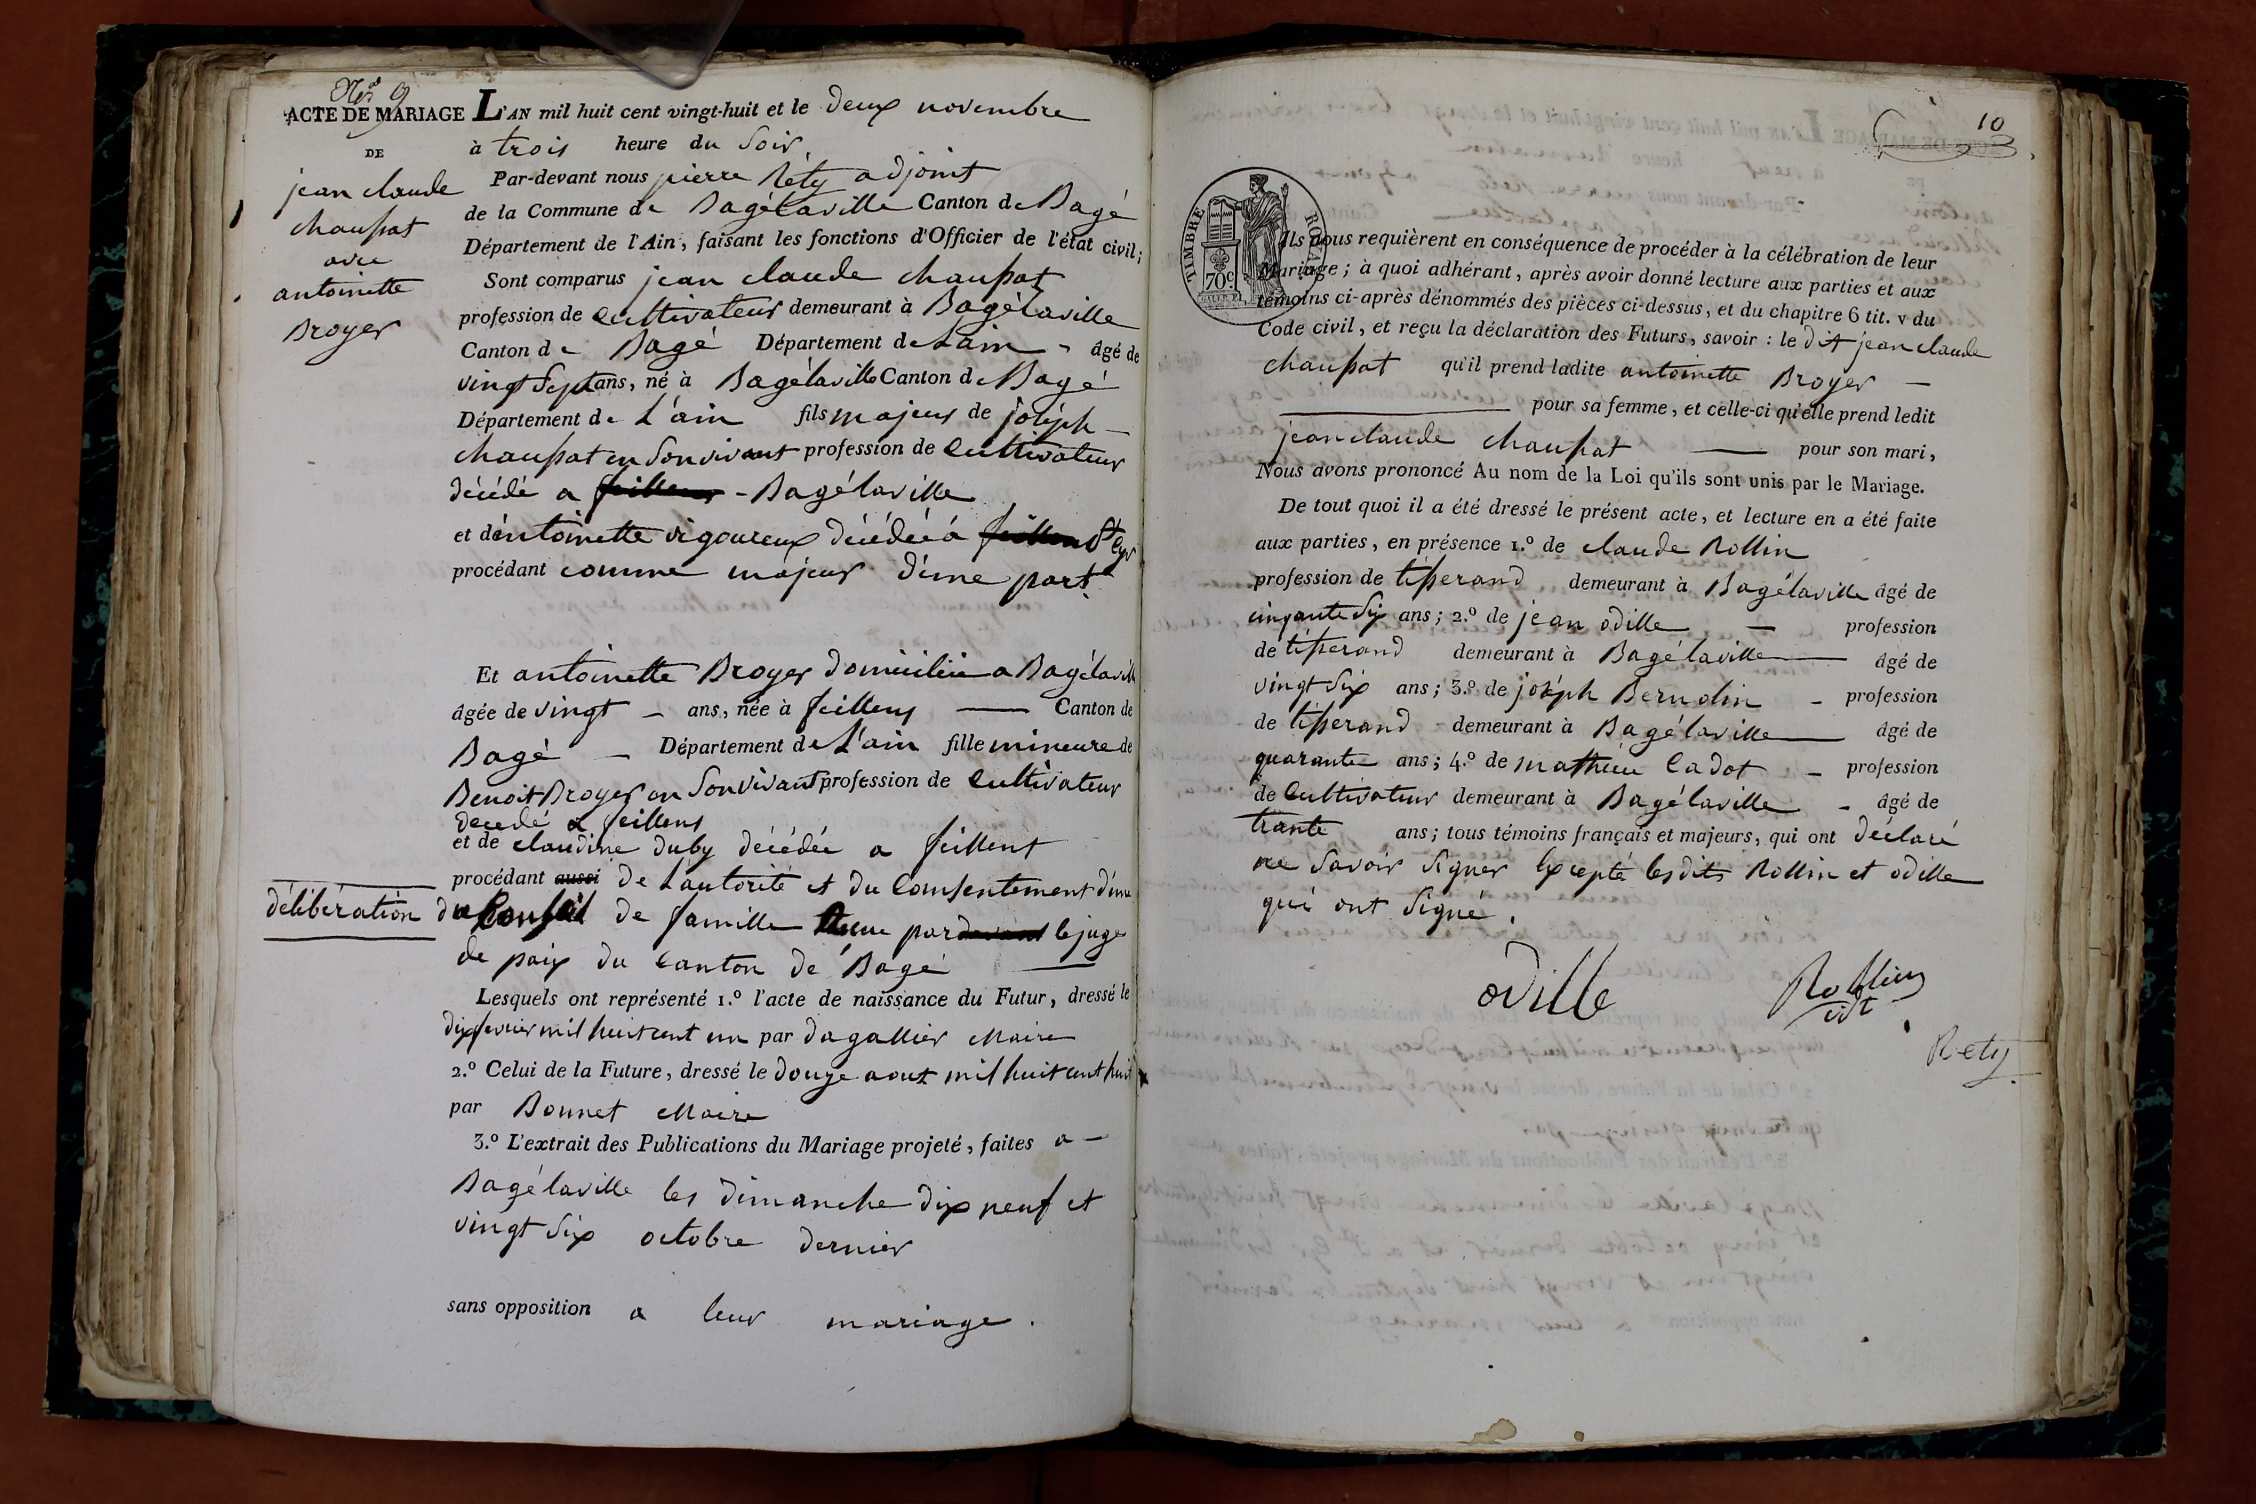 Nro 9
ACTE DE MARIAGE
DE
jean claude
chaussat
avec
antoinette
Broyer
L'AN mil huit cent vingt-huit et le deux novembre
à trois heure du soir
Par-devant nous pierre Réty adjoint
de la Commune de Bagélaville Canton de Bagé
Département de l'Ain, faisant les fonctions d'Officier de l'état civil;
Sont comparus jean claude chaussat
profession de cultivateur demeurant à Bagélaville
Canton de Bagé Département de L'ain - âgé de
vingt sept ans, né à Bagélaville Canton de Bagé
Département de L'ain fils majeur de joséph -
chaussat en son vivant profession de cultivateur
décédé a feillens - Bagélaville
et d'antoinette vigoureux décédée á feillens St Cyr
procédant comme majeur d'une part.
Et antoinette Broyer domiciliée a Bagélaville
âgée de vingt - ans, née à feillens — Canton de
Bagé - Département de L'ain fille mineure de
Benoit Broyer en son vivant profession de cultivateur
décedé a feillens
et de claudine duby décédée a feillens
procédant aussi de L'autorité et du Consentement d'une
délibération du Conseil de famille tenue par devant le juge
de paix du Canton de Bagé —
Lesquels ont représenté 1.º l'acte de naissance du Futur, dressé le
dix fevrier mil huit cent un par dagallier Maire
2.º Celui de la Future, dressé le douze aout mil huit cent huit
par Bonnet Maire
3.º L'extrait des Publications du Mariage projeté, faites a -
Bagélaville les dimanche dix neuf et
vingt six octobre dernier
sans opposition a leur mariage.
10
TIMBRE ROYAL
70c
Ils nous requièrent en conséquence de procéder à la célébration de leur
Mariage; à quoi adhérant, après avoir donné lecture aux parties et aux
témoins ci-après dénommés des pièces ci-dessus, et du chapitre 6 tit. v du
Code civil, et reçu la déclaration des Futurs, savoir : le dit jean claude
chaussat qu'il prend ladite antoinette Broyer —
— pour sa femme, et celle-ci qu'elle prend ledit
jean claude chaussat — pour son mari,
Nous avons prononcé Au nom de la Loi qu'ils sont unis par le Mariage.
De tout quoi il a été dressé le présent acte, et lecture en a été faite
aux parties, en présence 1.º de claude Rollin
profession de tisserand demeurant à Bagélaville âgé de
cinqante six ans; 2.º de jean odille — profession
de tisserand demeurant à Bagélaville — âgé de
vingt six ans; 3.º de joséph Bernolin - profession
de tisserand - demeurant à Bagélaville — âgé de
quarante ans; 4.º de mathieu Cadot - profession
de Cultivateur demeurant à Bagélaville - âgé de
trante ans; tous témoins français et majeurs, qui ont déclaré
ne savoir signer Excepté lesdits Rollin et odille
qui ont signé.
odille
Rollin
Rety